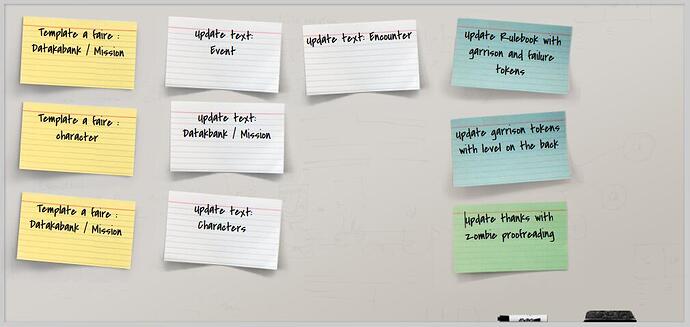 Template a faire :
Datakabank / Mission
Update text:
Event
Update text: Encounter
Update Rulebook with
garrison and failure
tokens
Template a faire :
character
Update text:
Datakbank / Mission
Update garrison tokens
with level on the back
Template a faire :
Datakabank / Mission
Update text:
Characters
Update thanks with
zombie proofreading